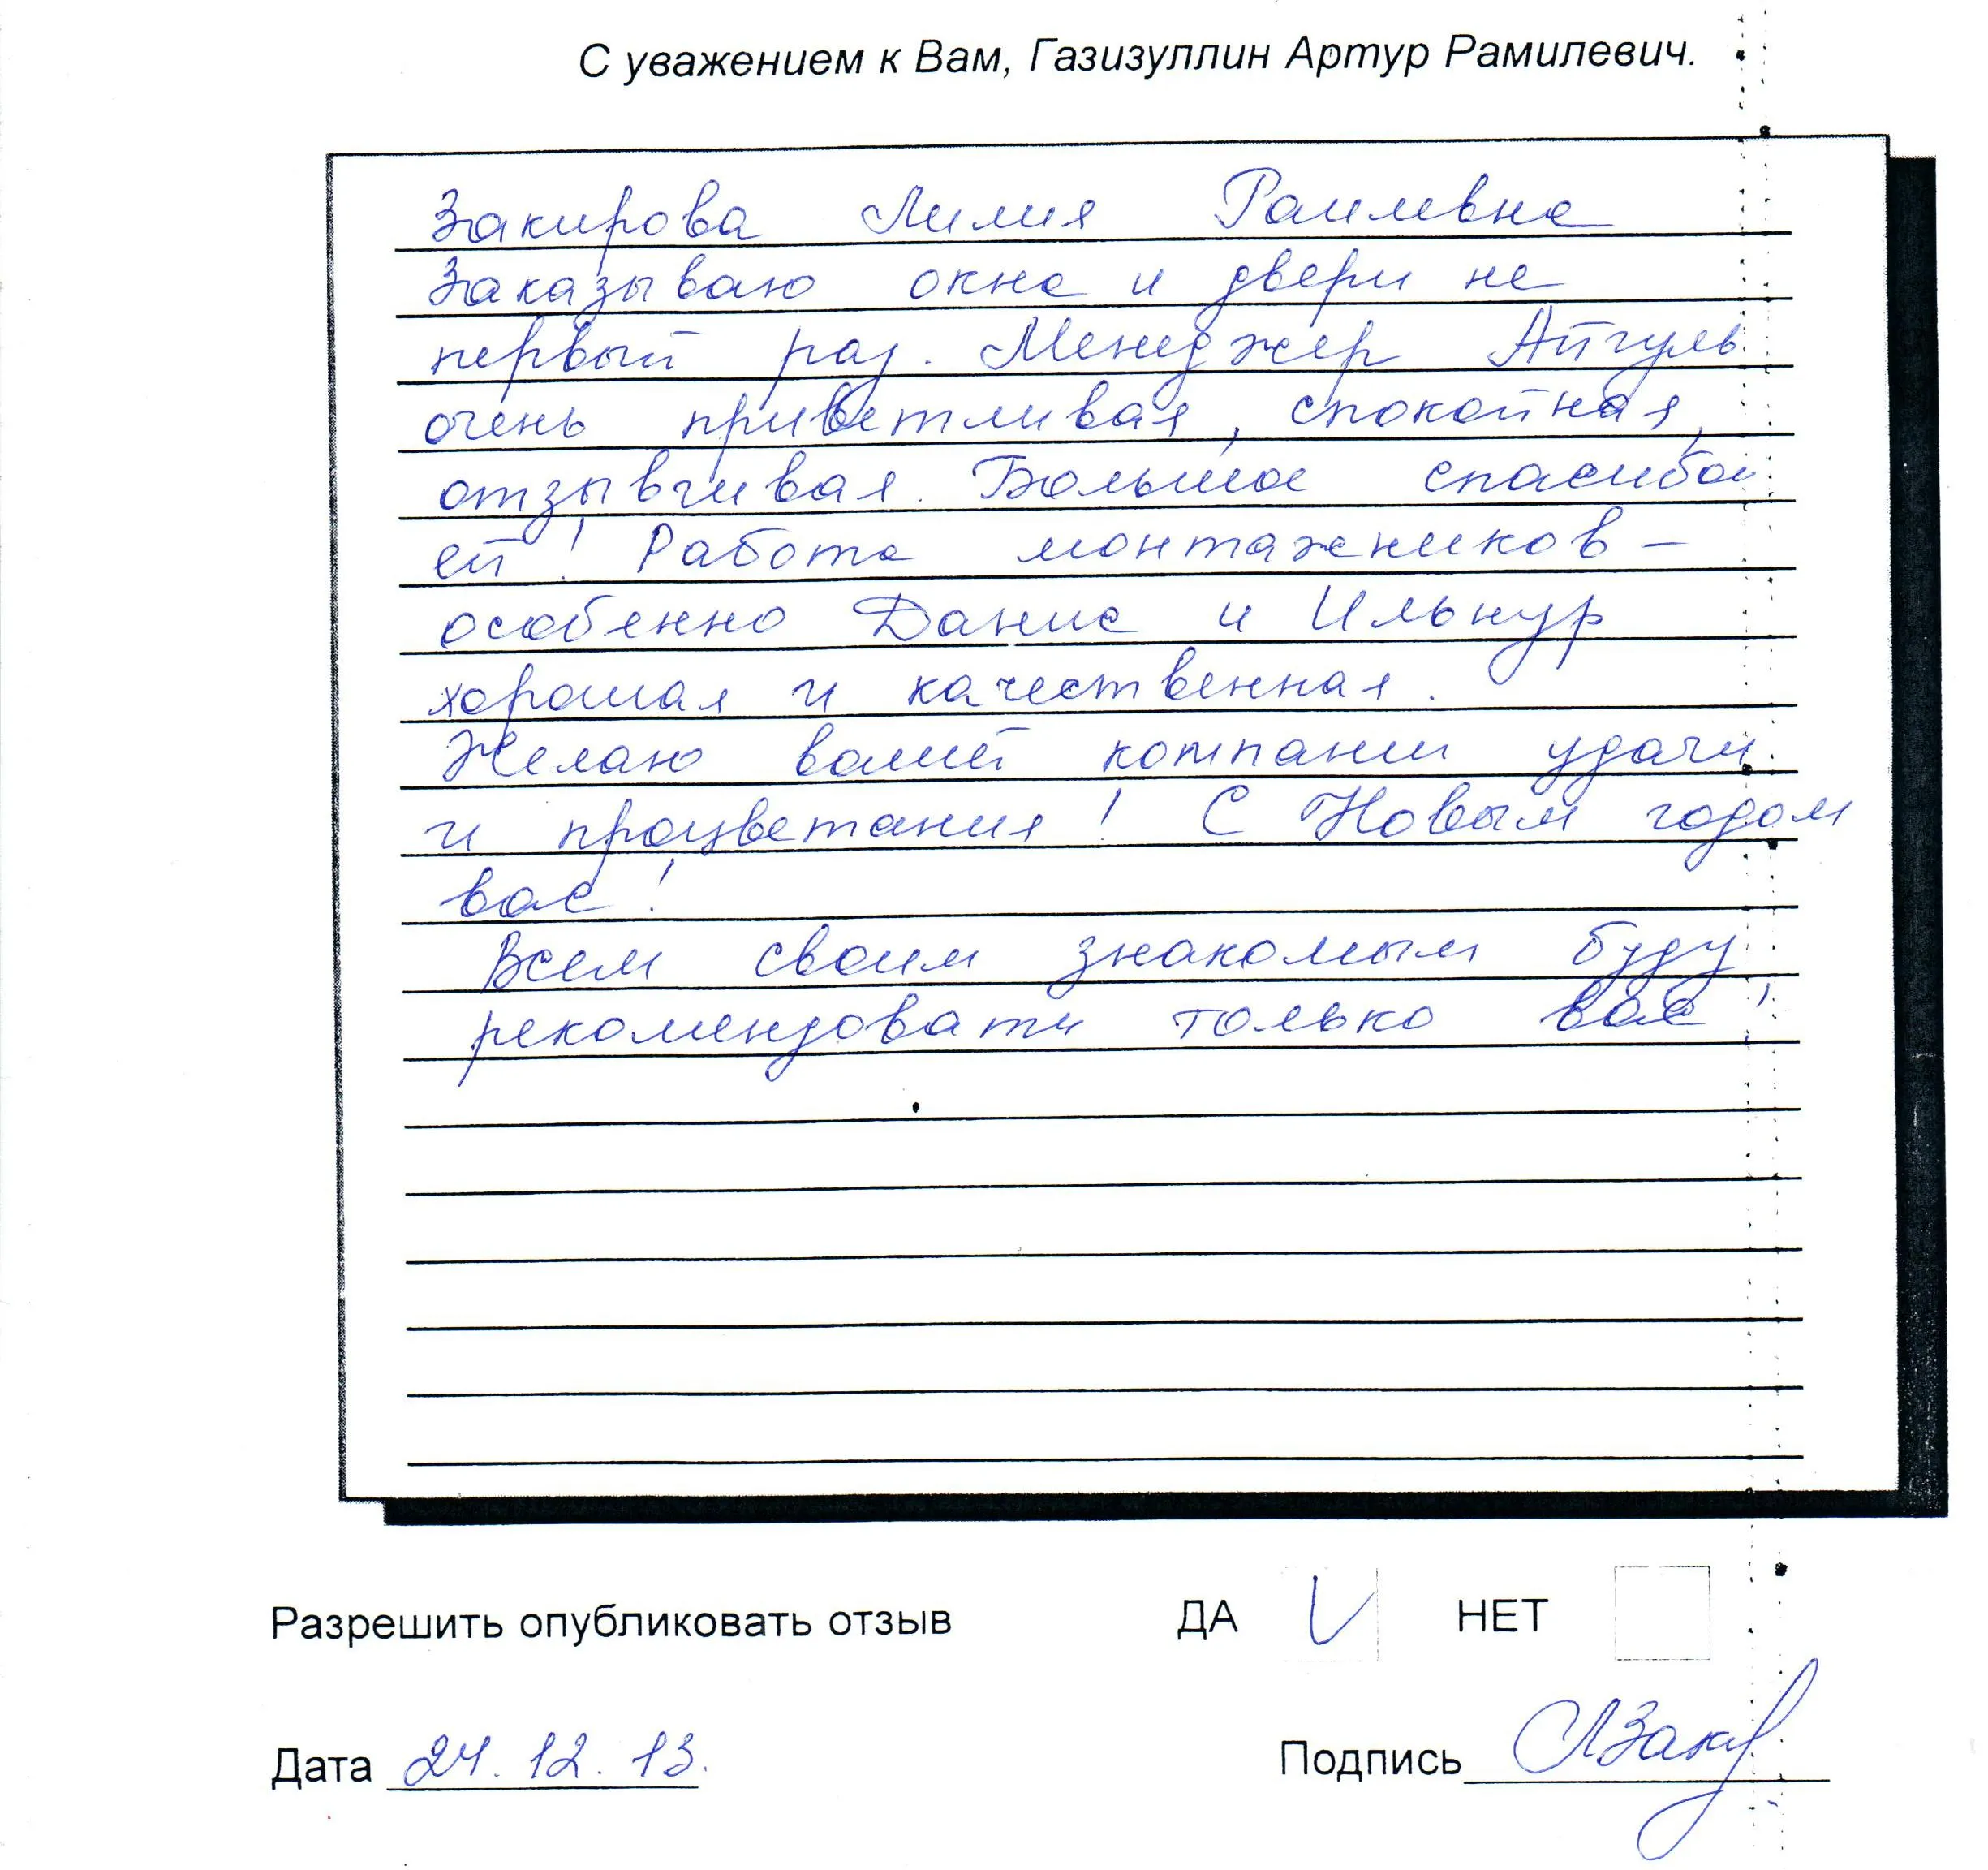 С уважением к Вам, Газизуллин Артур Рамилевич.
Закирова Лилия Раилевна
Заказываю окна и двери не
первый раз. Менеджер Айгуль
очень приветливая, спокойная,
отзывчивая. Большое спасибо
ей! Работа монтажников –
особенно Данис и Ильнур
хорошая и качественная.
Желаю вашей компании удачи
и процветания! С Новым годом
вас!
Всем своим знакомым буду
рекомендовать только вас!
Разрешить опубликовать отзыв ДА V НЕТ
Дата 24.12.13. Подпись ЛЗак